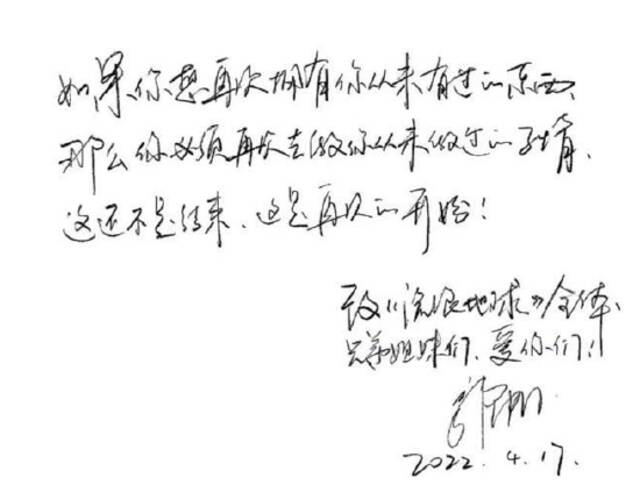 如果你想再次拥有你从未有过的东西、
那么你必须再次去做你从未做过的事情、
这还不是结束、这是再次的开始!
致《流浪地球》全体
兄弟姐妹们、爱你们!
郭帆
2022.4.17.